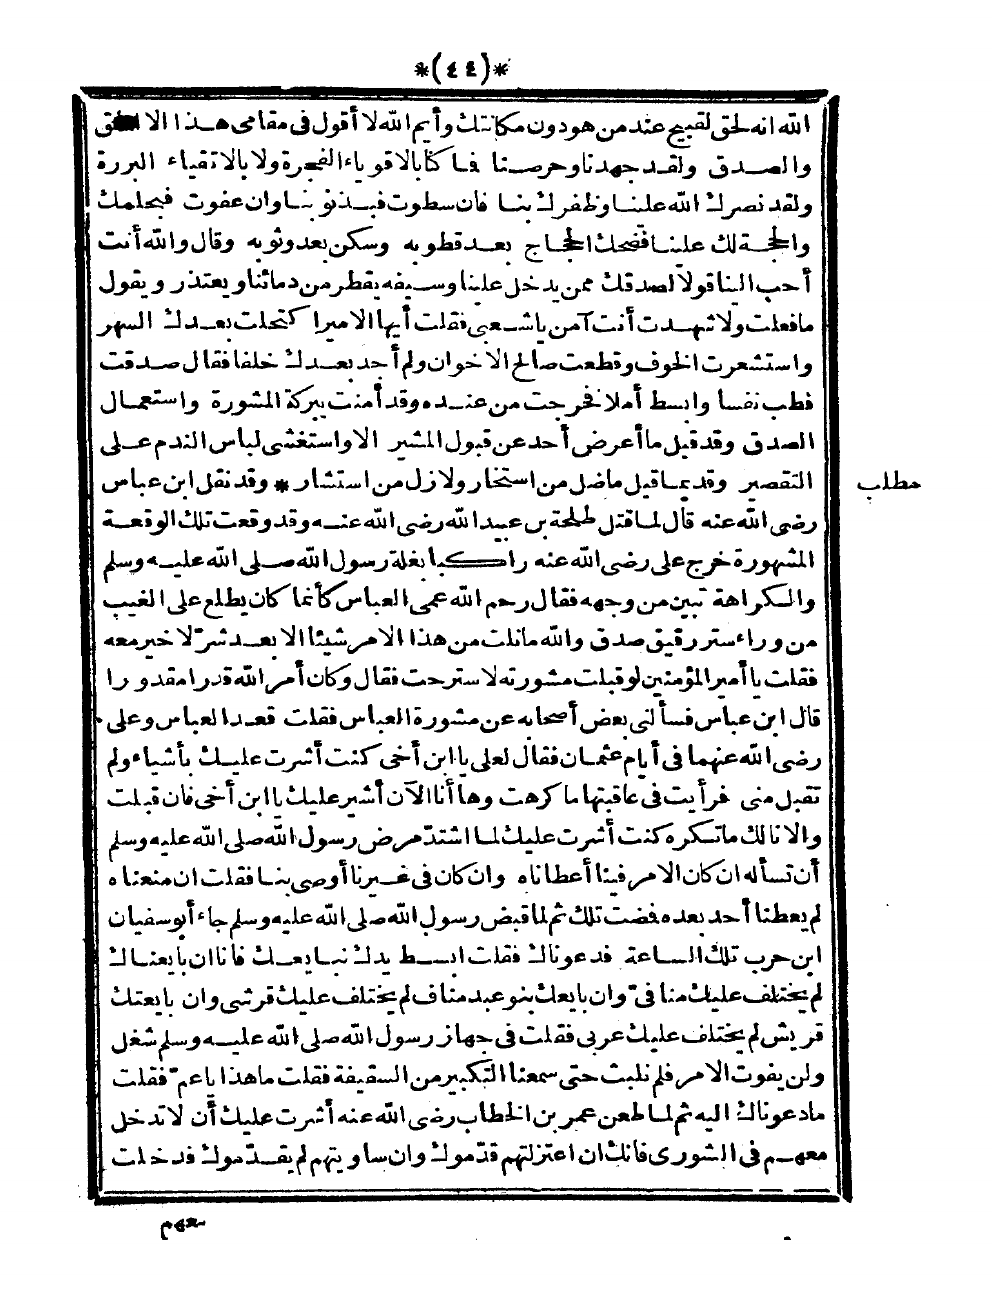 *(٤٤)*
الله انه لحق لقبيح عند من هو دون مكانتك وأيم الله لا أقول فى مقامى هذا الا الحق
والصدق ولقد جهدنا وحرصنا فما كنا بالاقوياء الفجرة ولا بالاتقياء البررة
ولقد نصرك الله علينا وظفرك بنا فان سطوت فبذنوبنا وان عفوت فبحلمك
والحجة لك علينا فضحك الحجاج بعد قطوبه وسكن بعد وثوبه وقال والله أنت
أحب الينا قولا لصدقك ممن يدخل علينا وسيفه يقطر من دمائنا ويعتذر ويقول
ما فعلت ولا شهدت أنت آمن يا شعبى فقلت أيها الامير اكتحلت بعدك السهر
واستشعرت الخوف وقطعت صالح الاخوان ولم أجد بعدك خلفا فقال صدقت
فطب نفسا وابسط أملا فخرجت من عنده وقد أمنت ببركة المشورة واستعمال
الصدق وقد قيل ما أعرض أحد عن قبول المشير الا واستغشى لباس الندم على
التقصير وقديما قيل ماضل من استخار ولا زل من استشار * وقد نقل ابن عباس
مطلب
رضى الله عنه قال لما قتل طلحة بن عبيد الله رضى الله عنه وقد وقعت تلك الوقعة
المشهورة خرج على رضى الله عنه راكبا بغلة رسول الله صلى الله عليه وسلم
والكراهة تبين من وجهه فقال رحم الله عمى العباس كأنما كان يطلع على الغيب
من وراء ستر رقيق صدق والله مانلت من هذا الامر شيئا الا بعد شرّ لا خير معه
فقلت يا أمير المؤمنين لو قبلت مشورته لاسترحت فقال وكان أمر الله قدرا مقدورا
قال ابن عباس فسألنى بعض أصحابه عن مشورة العباس فقلت قعد العباس وعلى
رضى الله عنهما فى أيام عثمان فقال لعلى يا ابن أخى كنت أشرت عليك بأشياء ولم
تقبل منى فرأيت فى عاقبتها ما كرهت وها أنا الآن أشير عليك يا ابن أخى فان قبلت
والا نالك ما تكره كنت أشرت عليك لما اشتدّ مرض رسول الله صلى الله عليه وسلم
أن تسأله ان كان الامر فينا أعطاناه وان كان فى غيرنا أوصى بنا فقلت ان منعناه
لم يعطنا أحد بعده فمضت تلك ثم لما قبض رسول الله صلى الله عليه وسلم جاء أبو سفيان
ابن حرب تلك الساعة فدعوناك فقلت ابسط يدك نبايعك فاناان بايعناك
لم يختلف عليك منا فىّ وان بايعك بنو عبد مناف لم يختلف عليك قرشى وان بايعتك
قريش لم يختلف عليك عربى فقلت فى جهاز رسول الله صلى الله عليه وسلم شغل
ولن يفوت الامر فلم نلبث حتى سمعنا التكبير من السقيفة فقلت ما هذا يا عمّ فقلت
مادعوناك اليه ثم لما طعن عمر بن الخطاب رضى الله عنه أشرت عليك أن لا تدخل
معهم فى الشورى فانك ان اعتزلتهم قدّموك وان ساويتهم لم يقدّموك فدخلت
معهم